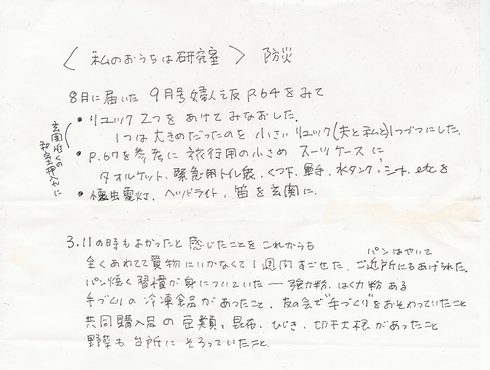 〈 私のおうちは研究室 〉 防災
8月に届いた 9月号婦人之友 P.64をみて
• リュック 2つをあけてみなおした。
1つは大きめだったのを 小さい リュック(夫と私と)1つづつにした。
玄関近くの
和室押入に
• P.67を参考に 旅行用の小さめ スーツケースに
タオルケット、緊急用トイレ袋、くつ下、軍手、水タンク、シート、etc を
• 懐中電灯、ヘッドライト、笛を玄関に。
3.11の時もよかったと 感じたことを これからも
全くあわてて買物にいかなくて 1週間すごせた。パンはやいて ご近所にもあげられた。
パン焼く習慣が身についていた ー 強力粉、はく力粉 ある
手づくりの 冷凍食品があったこと、友の会で"手づくり"をおそわっていたこと
共同購入品の 豆類、昆布、ひじき、切干大根があったこと
野菜も 台所に そろっていたこと。